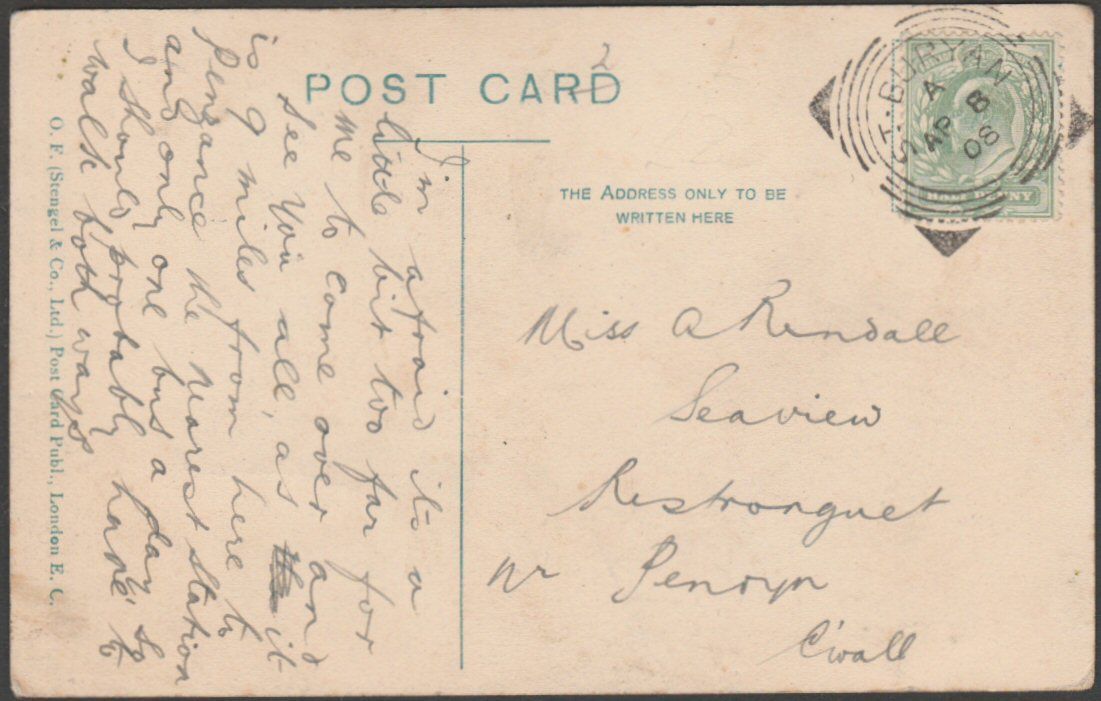 POST CARD
2
THE ADDRESS ONLY TO BE
WRITTEN HERE
ST. BURYAN
A
AP 6
08
HALFPENNY
I'm afraid its a
little bit too far for
me to come over and
see you all, as it
is 9 miles from here to
Penzance the nearest station
and only one bus a day so
I should probably have to
walk both ways
Miss A Rendall
Seaview
Restronguet
nr Penryn
C'wall
O. F. (Stengel & Co., Ltd.) Post Card Publ., London E. C.